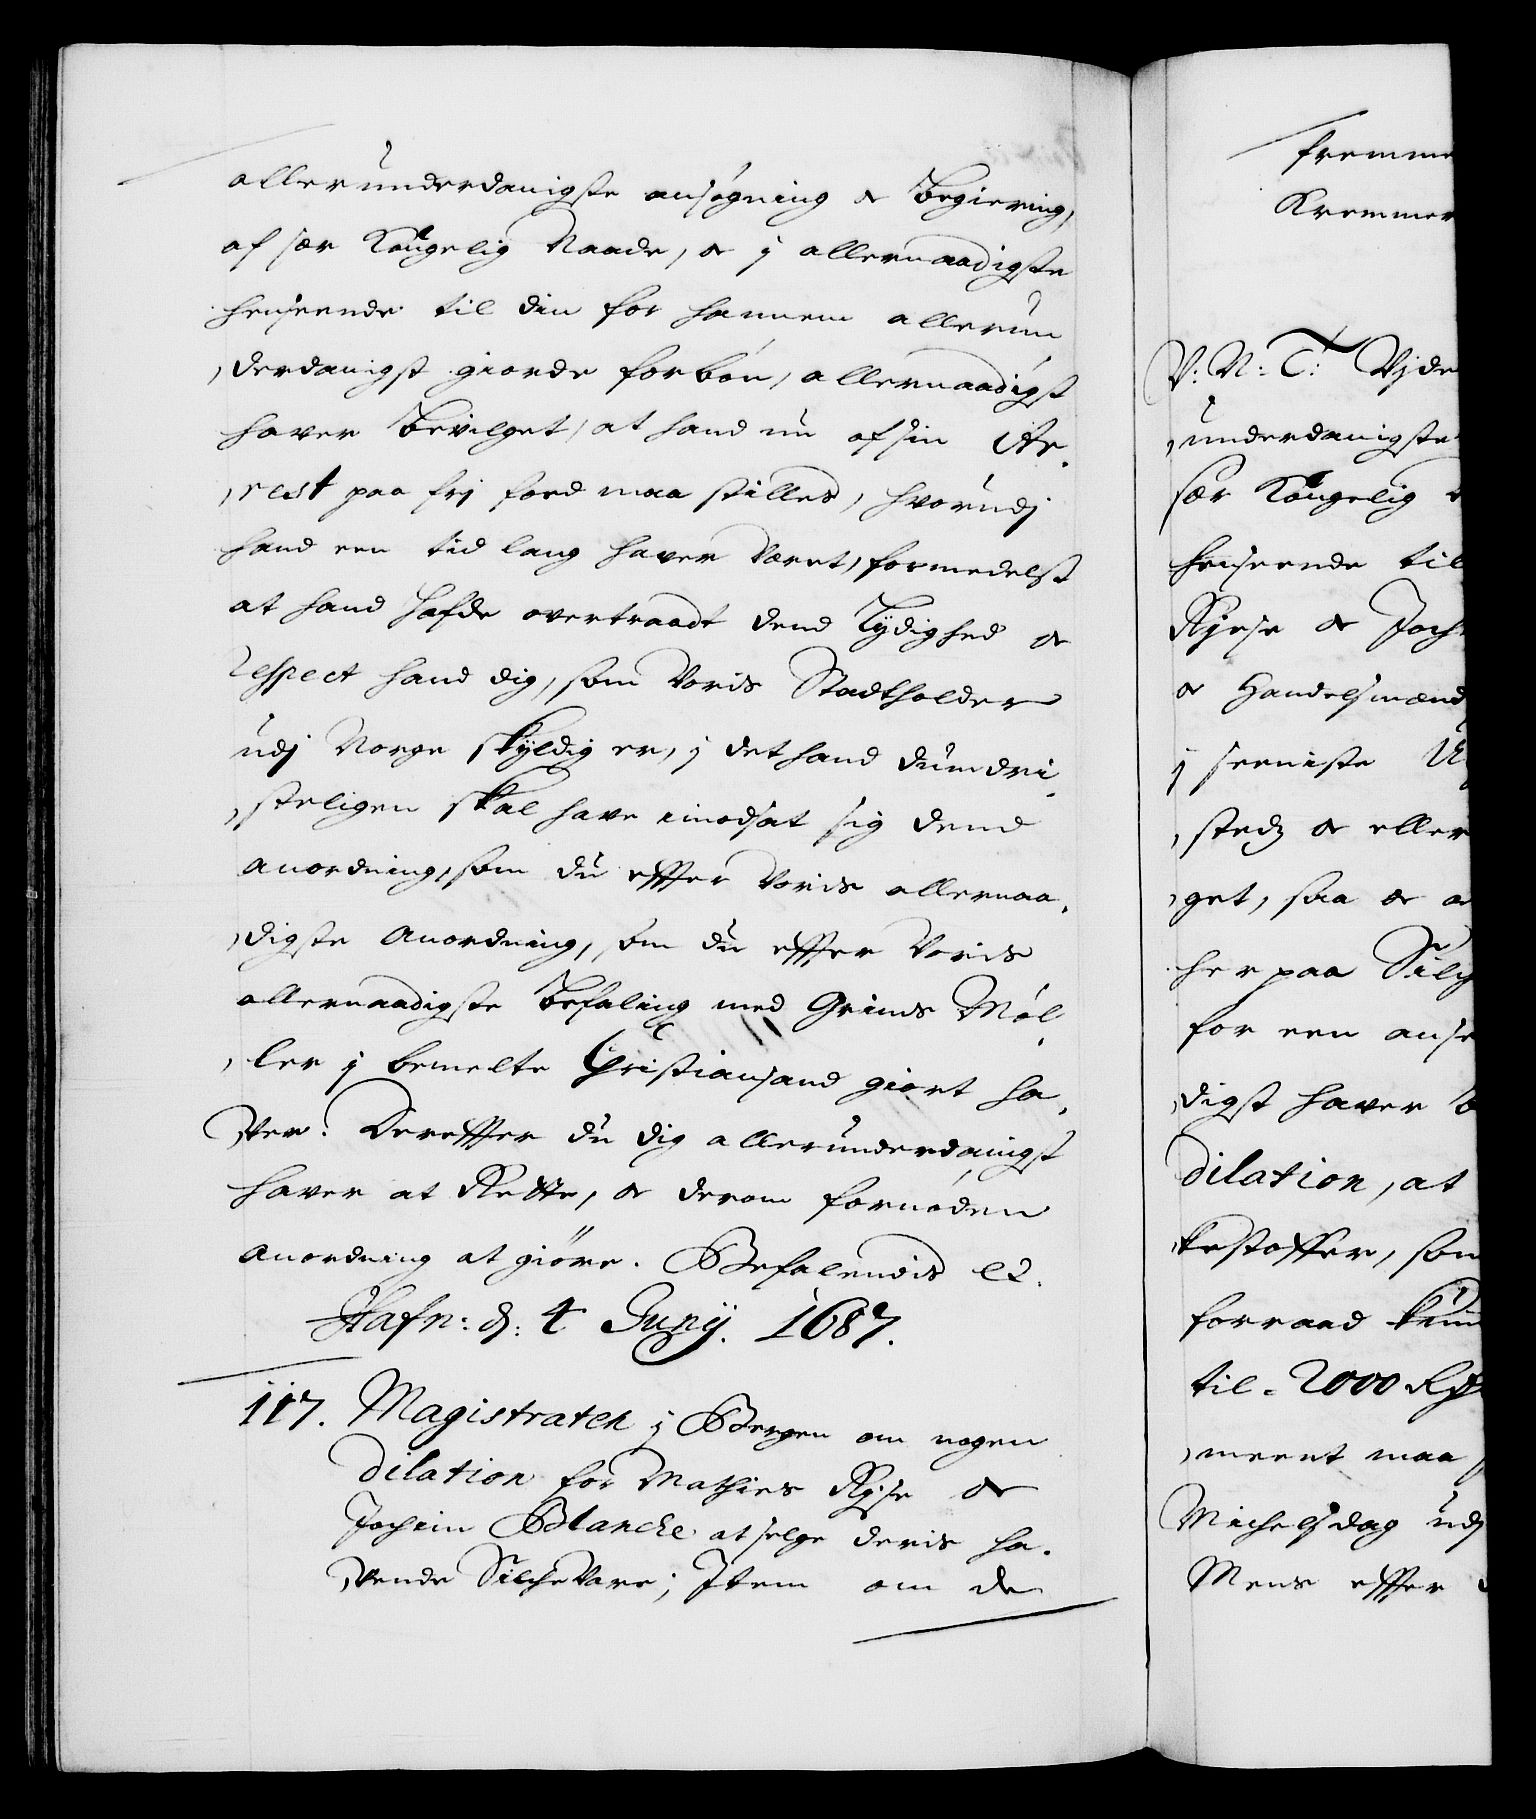 allerunderdanigste ansøgning oc Begiering,
af sær Kongelig Naade, oc j allernaadigste
henseende til din for hannem allerun
derdanigst giorde forbøn, allernaadigst
hafver Bevilget, at hand nu af sin Ar-
rest paa frj foed maa stilles, hvorudj
hand een tid lang hafver Været, formedelst
at hand hafde overtraadt dend Lydighed oc
respect hand dig, som Voris Stadtholder
udj Norge skyldig er, j det hand dumdri-
steligen skal hafve imodsat sig dend
anordning, som du effter Voris allernaa-
digste Anordning, som du effter Voris
allernaadigste Befaling med Grims Møl-
ler j bemelte Christiansand giort ha-
fver. Dereffter du dig allerunderdanigst
hafver at Rette, oc derom fornøden
anordning at giøre. Befalendis etc.
Hafn: d: 4 Junij. 1687.
117. Magistraten j Bergen om nogen
dilation for Mathies Ryse oc
Jochim Blancke at selge deris ha-
fvende Silcke Vare; Item om de
fremme
Kremmer
V: N: T: Vjde
underdanigste
sær Kongelig
henseende til
Ryse oc Joch
oc Handelsmænd
j seeniste
steds oc eller
get, saa oc
her paa Silc
for een anse
digst hafver b
dilation, at
kestoffer, som
forraad kun
til 2000 Rdr
meent maa
Michelsdag udj
Mens effter